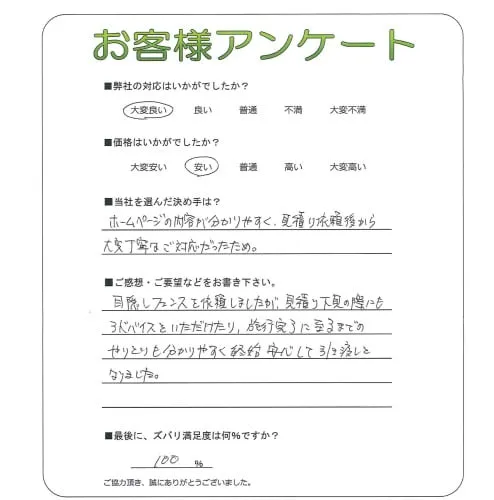 お客様アンケート
■弊社の対応はいかがでしたか？
大変良い 良い 普通 不満 大変不満
■価格はいかがでしたか？
大変安い 安い 普通 高い 大変高い
■当社を選んだ決め手は？
ホームページの内容が分かりやすく、見積り依頼後から
大変丁寧なご対応だったため。
■ご感想・ご要望などをお書き下さい。
目隠しフェンスを依頼しましたが、見積り下見の際にも
アドバイスをいただけたり、施行完了に至るまでの
やりとりも分かりやすく終始安心して引き渡しと
なりました。
■最後に、ズバリ満足度は何％ですか？
100 %
ご協力頂き、誠にありがとうございました。